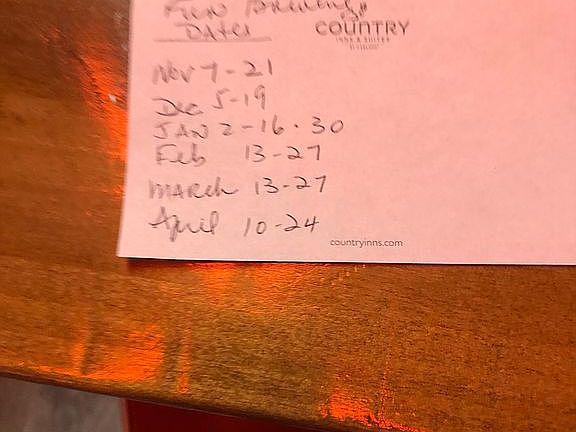 Fun Drawings
Dates
COUNTRY
INN & SUITES
BY RADISSON
Nov 7-21
Dec 5-19
JAN 2-16-30
Feb 13-27
MARCH 13-27
April 10-24
countryinns.com